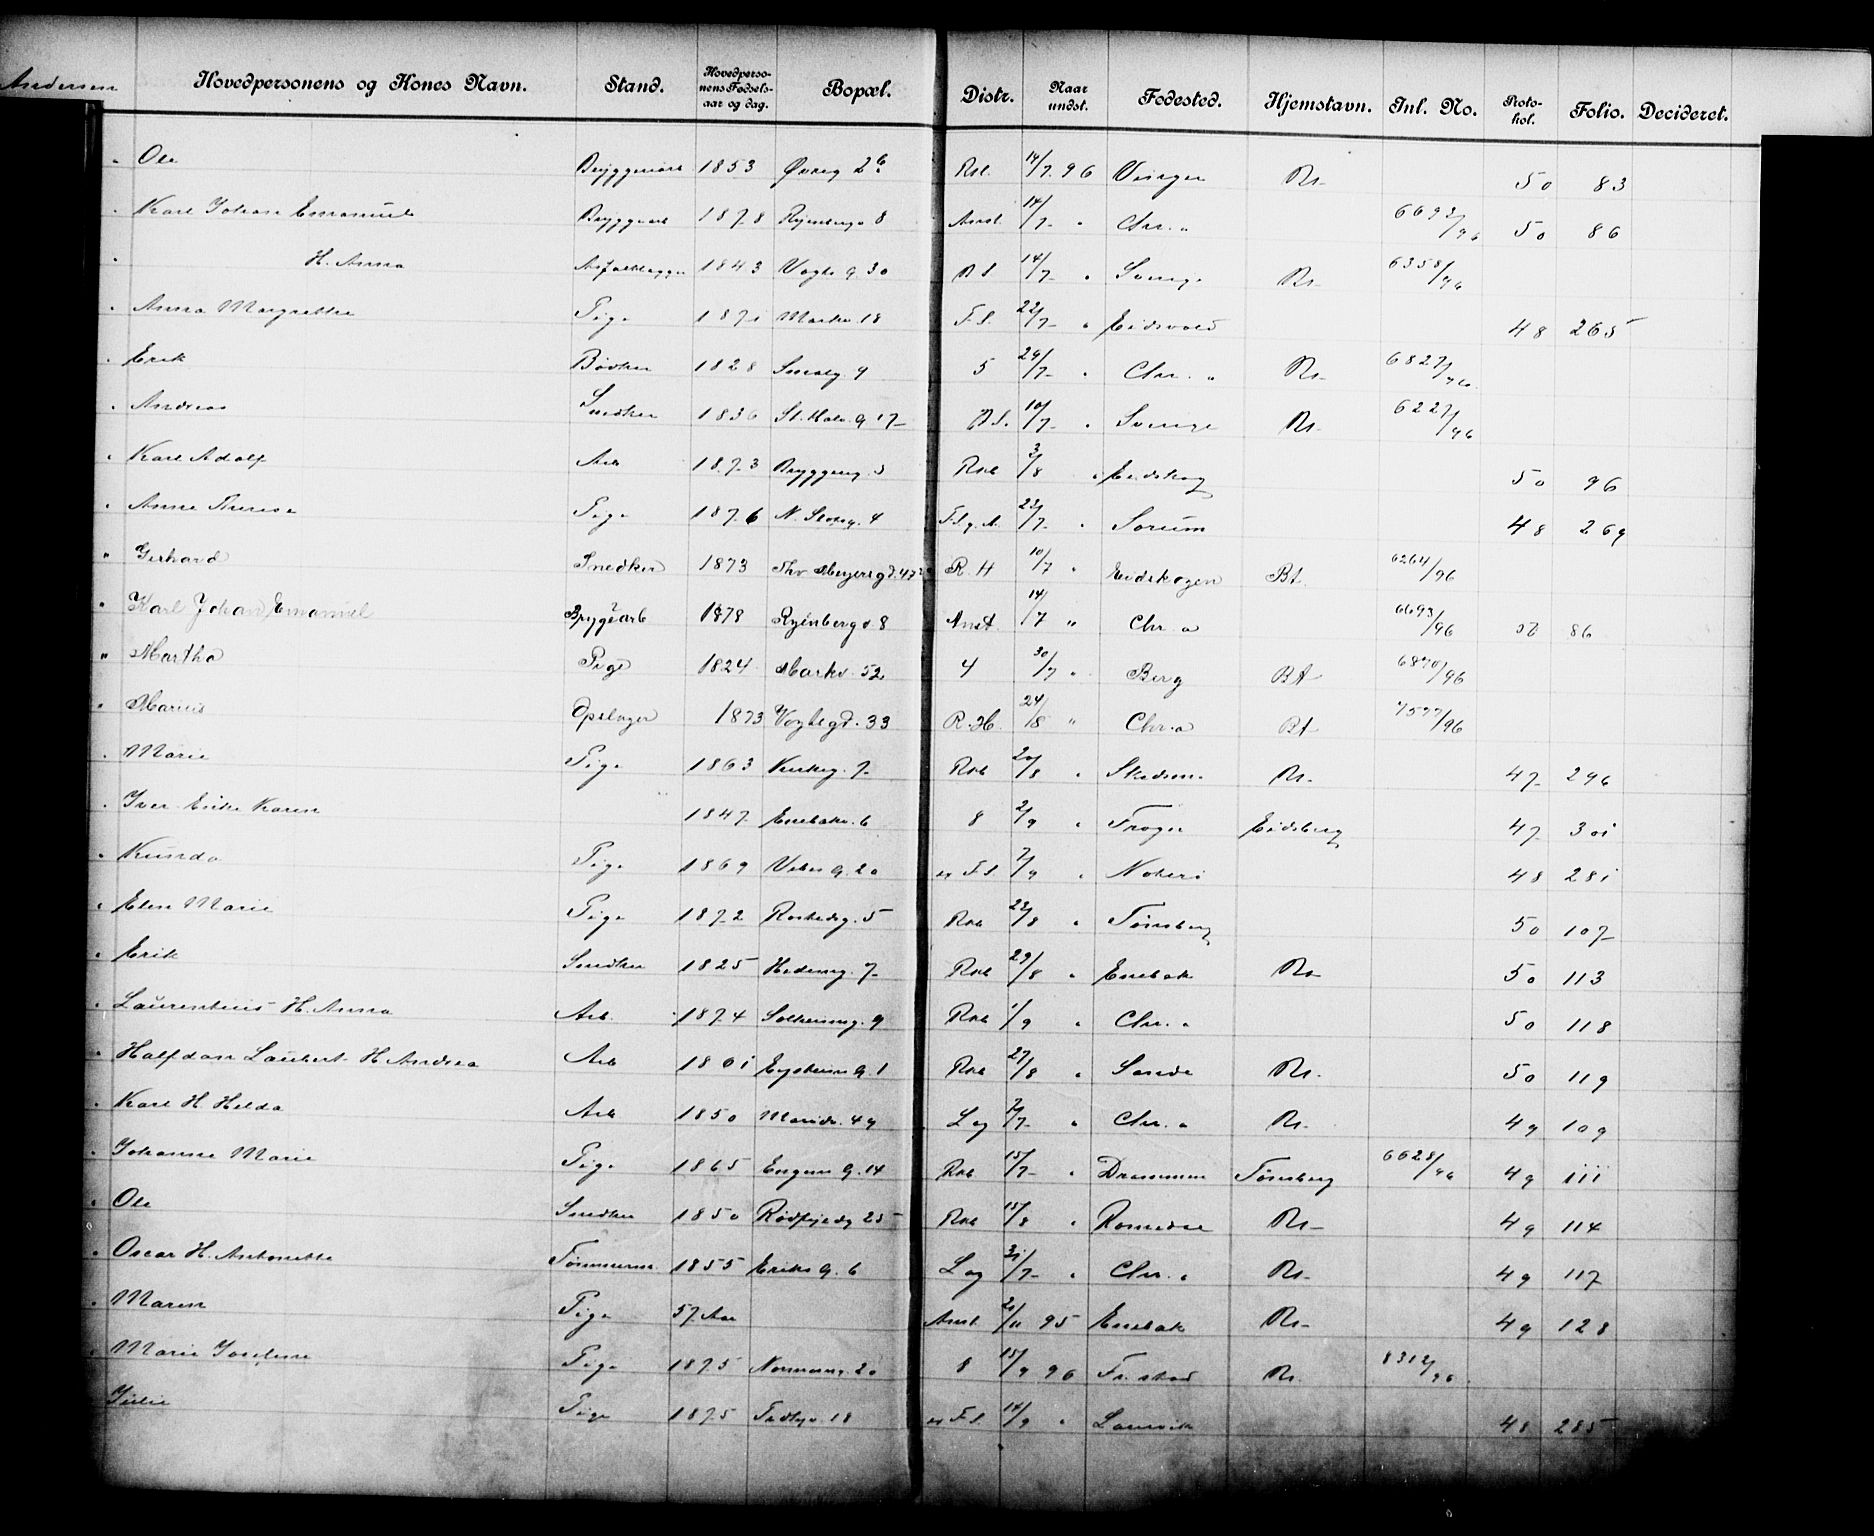 Andersen Hovedpersonens og Kones Navn. Stand. Hovedpersonens Fødselsaar og dag. Bopæl. Distr. Naar undst. Fødested. Hjemstavn. Inl. No. Protokol. Folio. Decideret.
" Ole Bryggeriarb 1853 26 14/7 96 Vinger 50 83
" Karl Johan Emanuel Bryggearb 1878 Ryenbergv 8 Anst. 14/7 " Chr.a 6693/96 50 86
" H. Anna Asfaltlægger 1843 Vogts g. 30 14/7 " Sverige 6358/96
" Anna Margrethe Pige 1871 Markv. 18 F.S. 22/7 " Eidsvold 48 265
" Erik Bødker 1828 Smalg. 9 5 29/7 " Chr.a 6827/96
" Andreas Snedker 1836 St. Halv. g 17 10/7 " Sverige 6227/96
" Karl Adolf Arb 1873 Bryggerg. 5 3/8 " Eidskog 50 96
" Anne Therese Pige 1876 N. Slotsg. 4 23/7 " Sørum 48 269
" Gerhard Snedker 1873 Thv Meyersgd. 47 R. H 10/7 " Eidskogen Bt. 6264/96
" Karl Johan Emanuel Bryggearb 1878 Ryenbergv. 8 Anst. 14/7 " Chr.a 6693/96 50 86
" Martha Pige 1824 Markv. 52 4 30/7 " Berg Bt 6870/96
" Marius Opslager 1873 Vogtsgd. 33 R. H. 24/8 " Chr.a Bt 7577/96
" Marie Pige 1863 Kirkeg. 7 20/8 " 47 296
" Iver Enke Karen 1847 Enebakv. 6 8 2/9 " Trøgst Eidsberg 47 301
" Kunda Pige 1869 g. 20 F.S. 7/9 " Noterø 48 281
" Elen Marie Pige 1872 5 22/8 " Tønsberg 50 107
" Erik Snedker 1825 Hedemg. 7 29/8 " Enebak 50 113
" Laurentius H. Anna Arb. 1874 9 1/9 " Chr.a 50 118
" Halfdan Laubert H Andrea Arb 1861 g. 1 27/8 " Sande 50 119
" Karl H. Hilda Arb 1850 Maridv. 49 Lag 7/7 " Chr.a 49 109
" Johanne Marie Pige 1865 Engens g. 14 15/7 " Drammen Tønsberg 6628/96 49 111
" Ole Snedker 1850 Rødfyldg 25 15/8 " Romedal 49 114
" Oscar H. Antonette Tømmerm. 1855 Eriks g. 6 Lag 31/7 " Chr.a 49 117
" Maren Pige 57 Aar Anst. 2/11 95 Enebak 49 128
" Marie Josefine Pige 1875 Normansg. 20 8 15/9 96 Fr.stad 8312/96
Julie Pige 1875 18 F.S. 14/9 " Laurvik 48 285